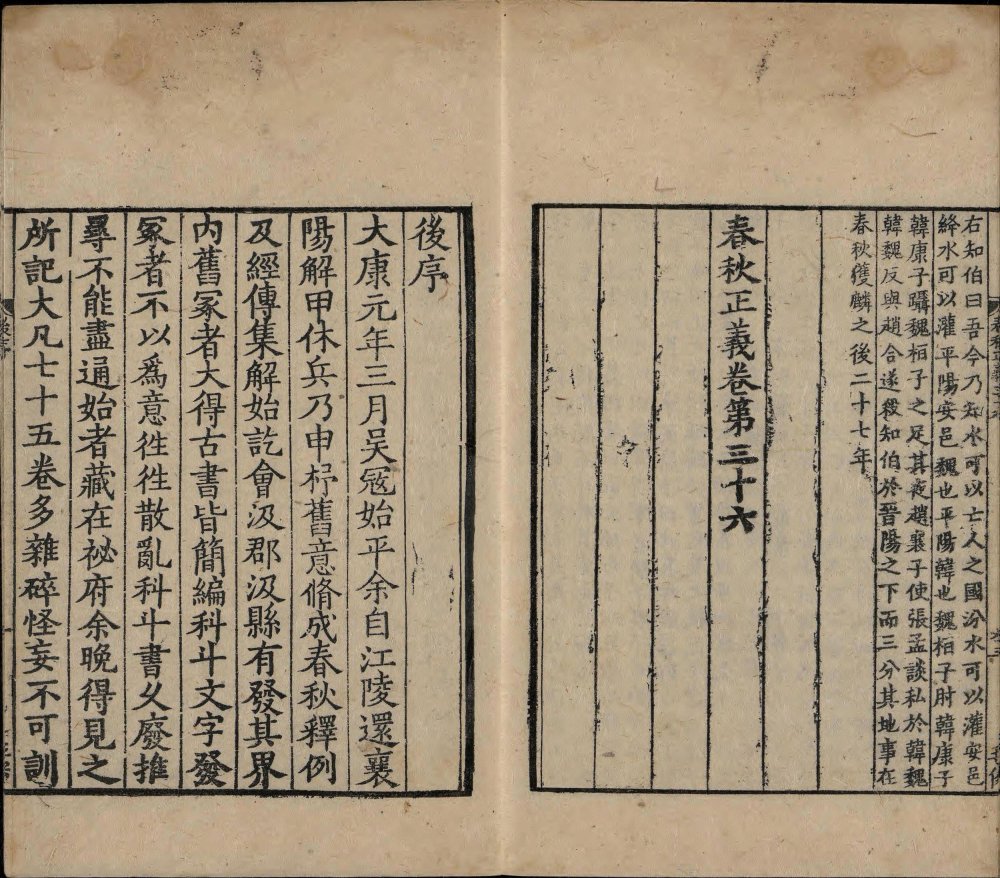 右知伯曰吾今乃知水可以亡人之國汾水可以灌安邑
絳水可以灌平陽安邑魏也平陽韓也魏桓子肘韓康子
韓康子躡魏桓子之足其夜趙襄子使張孟談私於韓魏
韓魏反與趙合遂殺知伯於晉陽之下而三分其地事在
春秋獲麟之後二十七年
春秋正義卷第三十六
後序
大康元年三月吳寇始平余自江陵還襄
陽解甲休兵乃申杼舊意脩成春秋釋例
及經傳集解始訖會汲郡汲縣有發其界
內舊冢者大得古書皆簡編科斗文字發
冢者不以爲意徃徃散亂科斗書久廢推
尋不能盡通始者藏在祕府余晚得見之
所記大凡七十五卷多雜碎怪妄不可訓